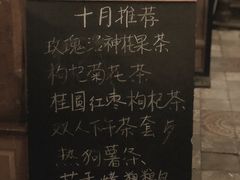 十月推荐
玫瑰洛神花果茶
枸杞菊花茶
桂圆红枣枸杞茶
双人下午茶套
热狗薯条